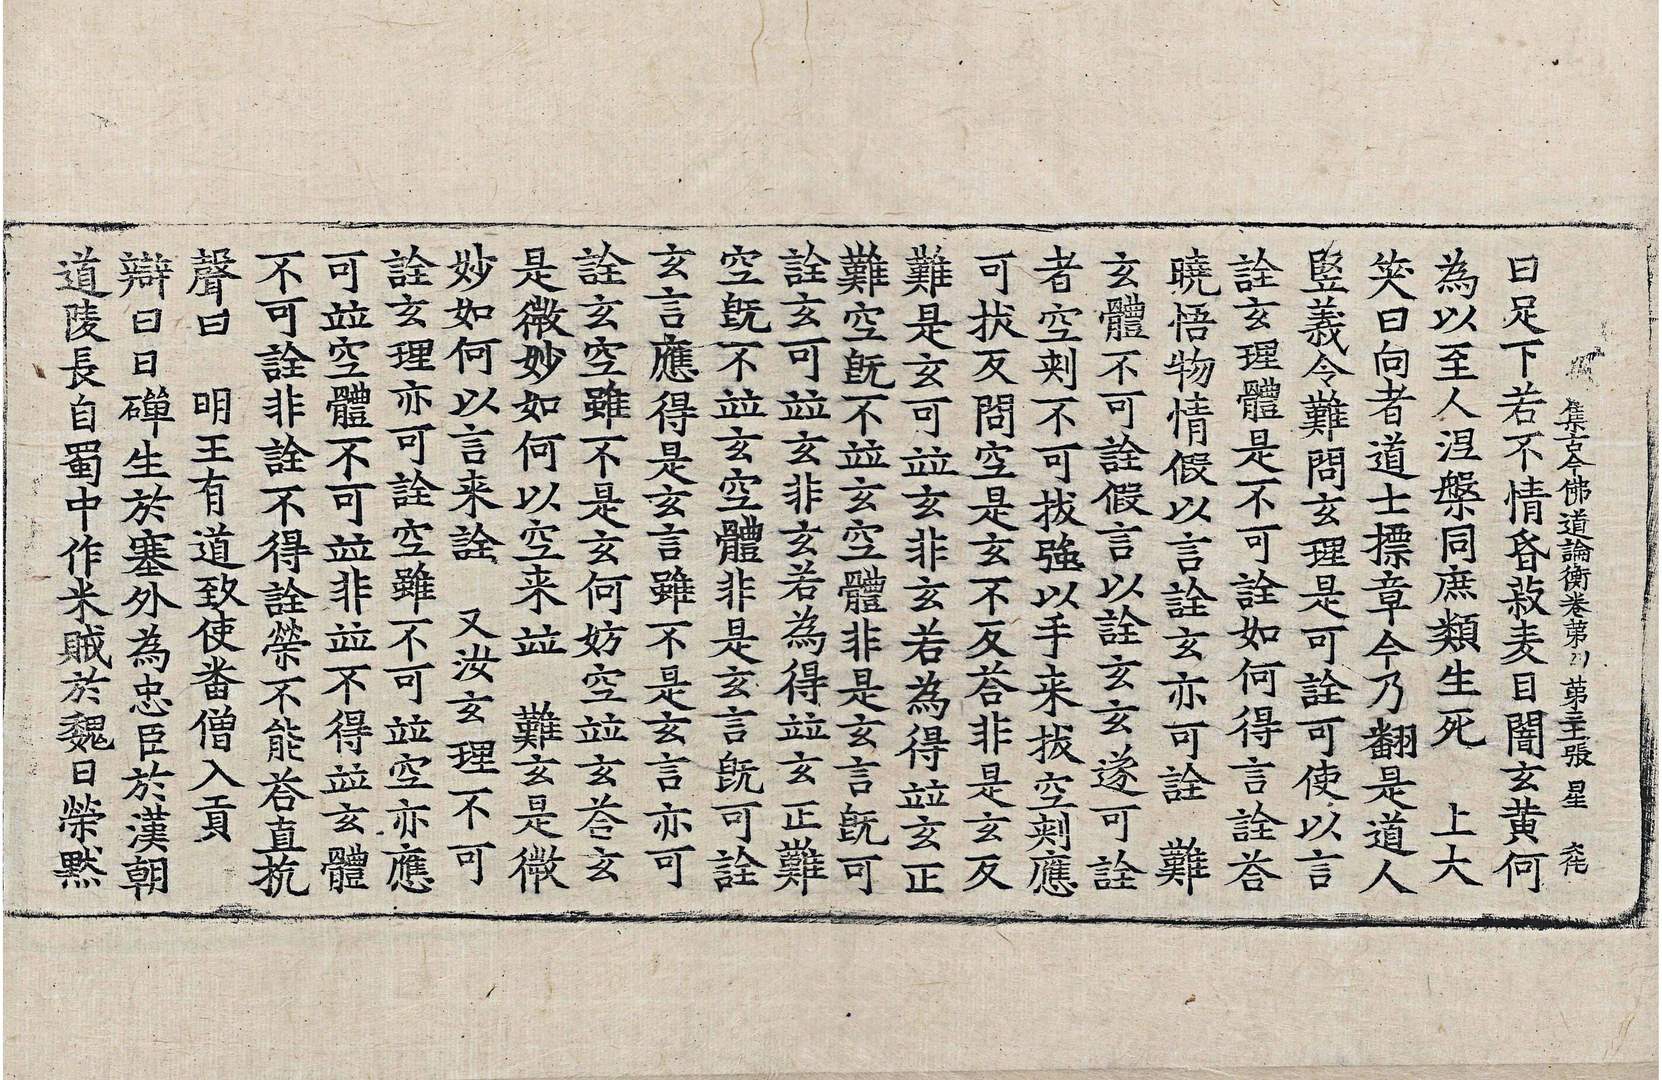 集古今佛道論衡卷第丁 第三張 星
曰足下若不情昏菽麦目闇玄黄何
為以至人涅槃同庶類生死 上大
笑曰向者道士摽章今乃翻是道人
竪義令難問玄理是可詮可使以言
詮玄理體是不可詮如何得言詮荅
曉悟物情假以言詮玄亦可詮 難
玄體不可詮假言以詮玄玄遂可詮
者空刺不可拔強以手来拔空刺應
可拔反問空是玄不反荅非是玄反
難是玄可竝玄非玄若為得竝玄正
難空旣不竝玄空體非是玄言旣可
詮玄可竝玄非玄若為得竝玄正難
空旣不竝玄空體非是玄言旣可詮
玄言應得是玄言雖不是玄言亦可
詮玄空雖不是玄何妨空竝玄荅玄
是微妙如何以空来竝 難玄是微
妙如何以言来詮 又汝玄理不可
詮玄理亦可詮空雖不可竝空亦應
可竝空體不可竝非竝不得竝玄體
不可詮非詮不得詮榮不能荅直抗
聲曰 明王有道致使番僧入貢
辯曰日磾生於塞外為忠臣於漢朝
道陵長自蜀中作米賊於魏日榮黙